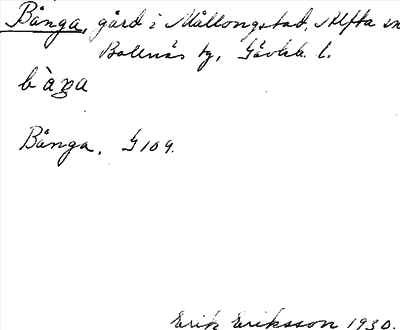 Bånga, gård i Mållongstad, Alfta sn
Bollnäs tg, Gävleb. l.
Bånga. G 109.
Erik Eriksson 1930.